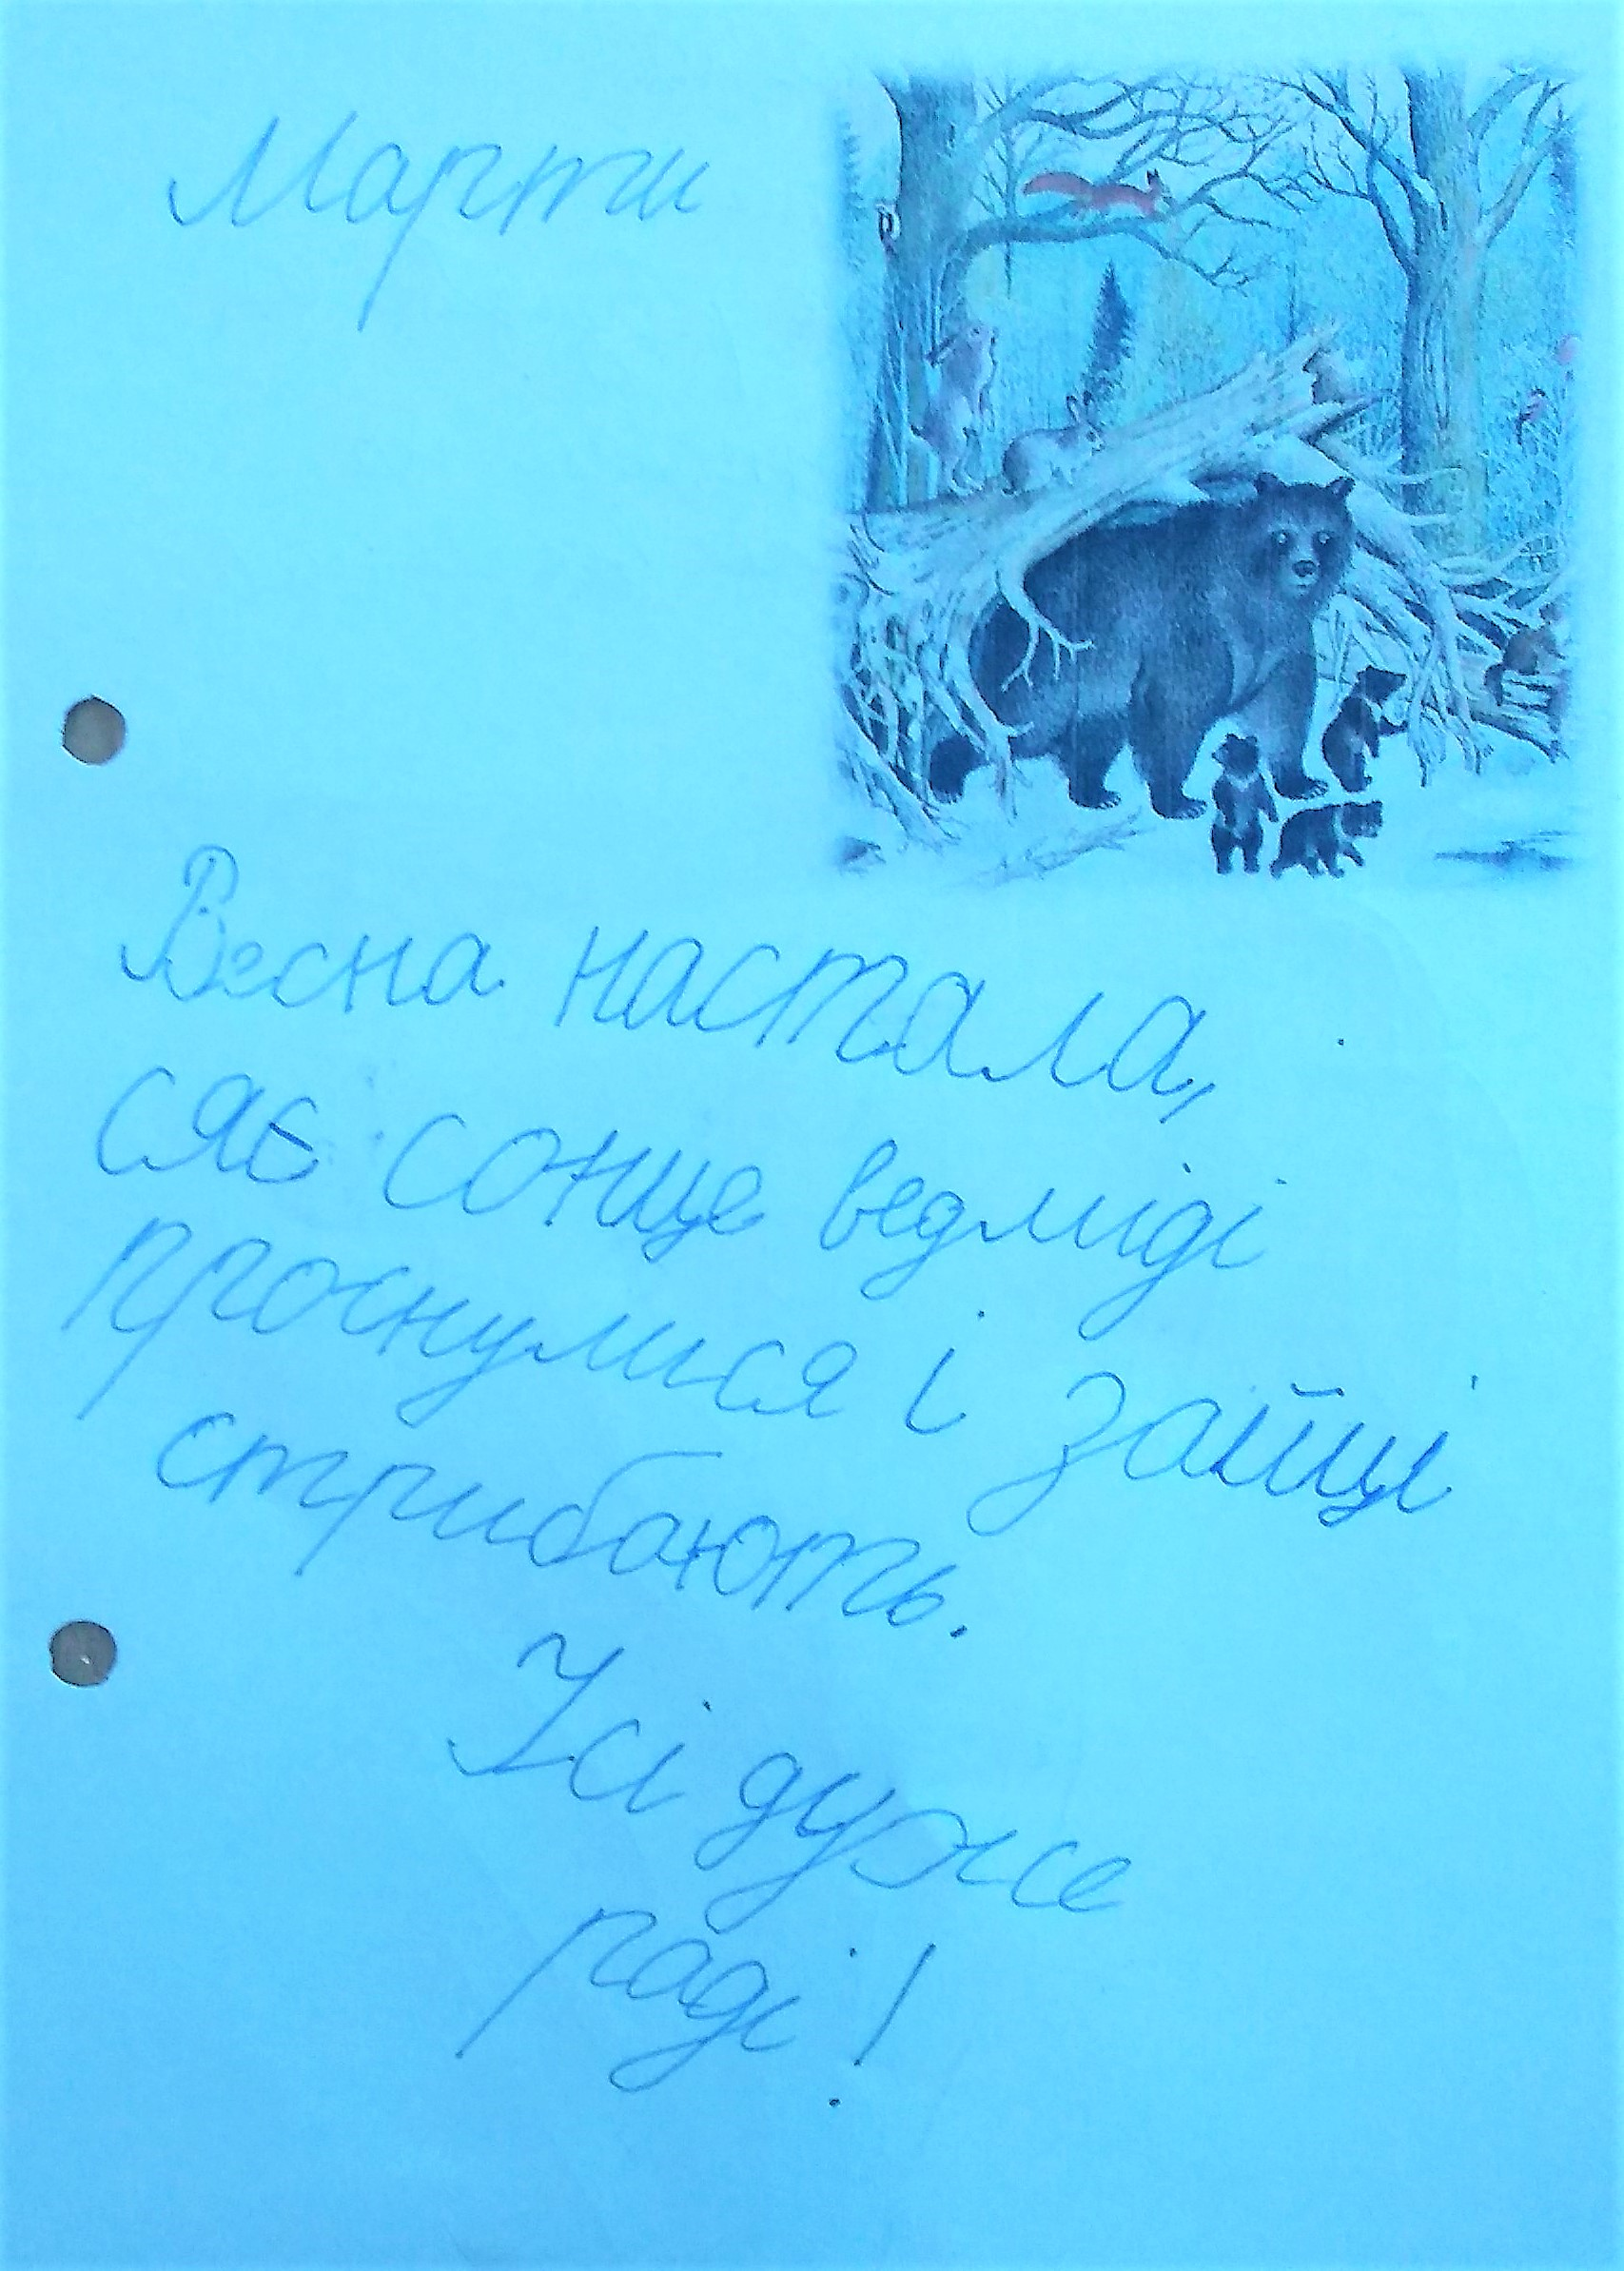 Марти
Весна настала,
сяє сонце ведміді
проснулися і зайці
стрибають.
Усі дуже
раді!